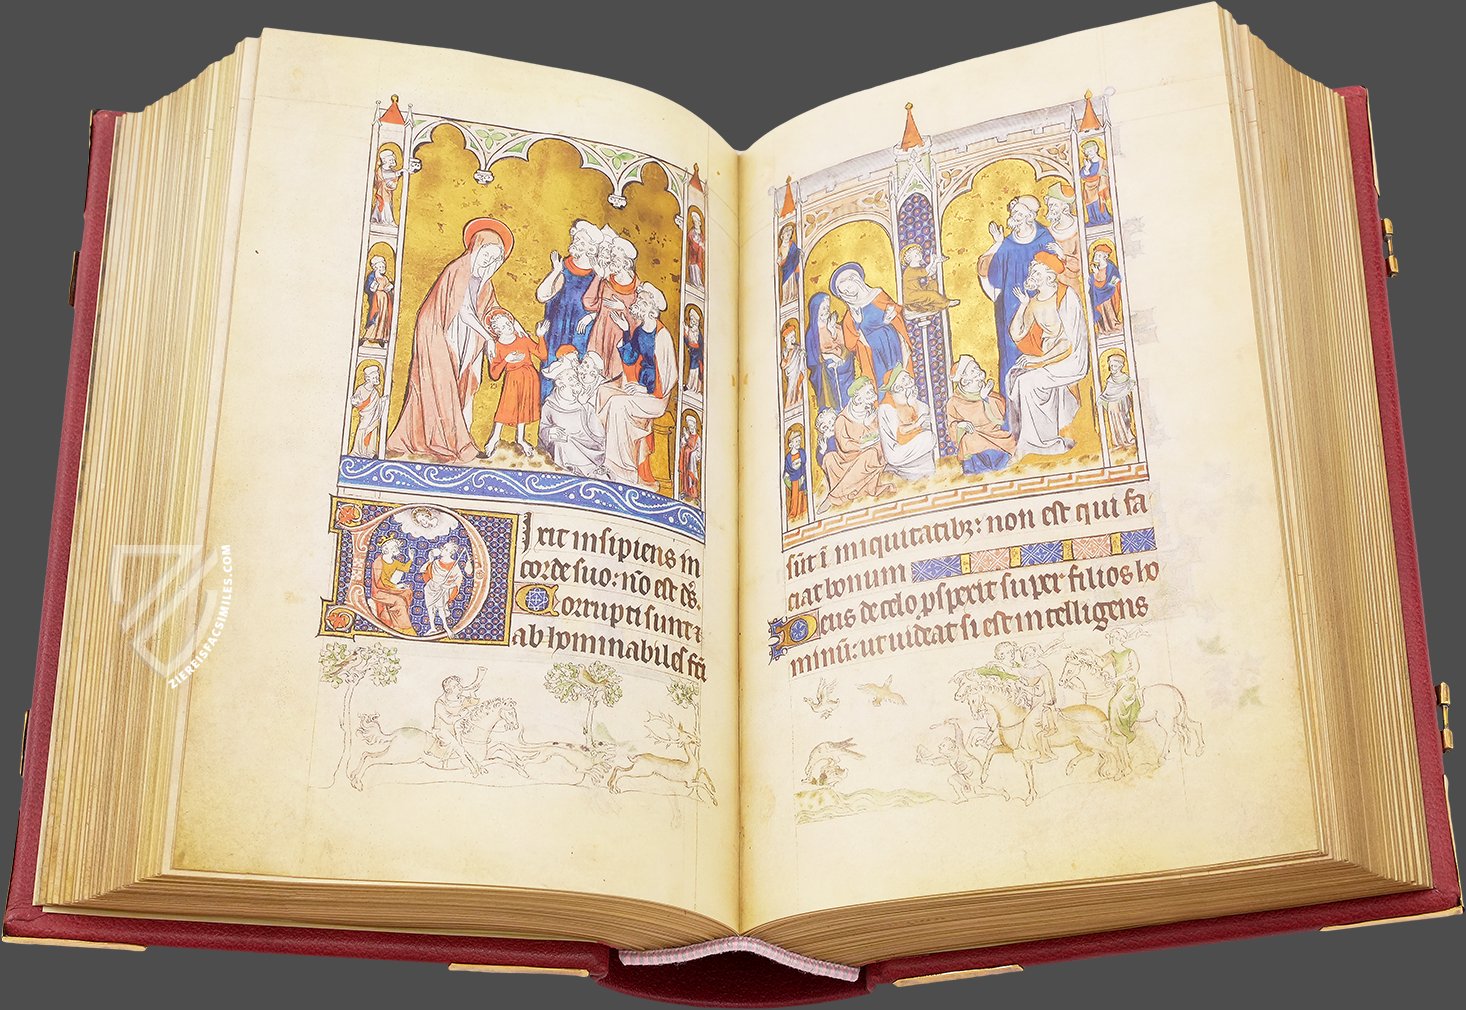 Dixit insipiens in
corde suo: nō est ds̄.
Corrupti sunt ⁊
abhominabiles fc̄i
sūt ī iniquitatibꝫ: non est qui fa
ciat bonum
Deus de celo ꝓspexit super filios ho
minū: ut uideat si est intelligens
ZIEREISFACSIMILES.COM